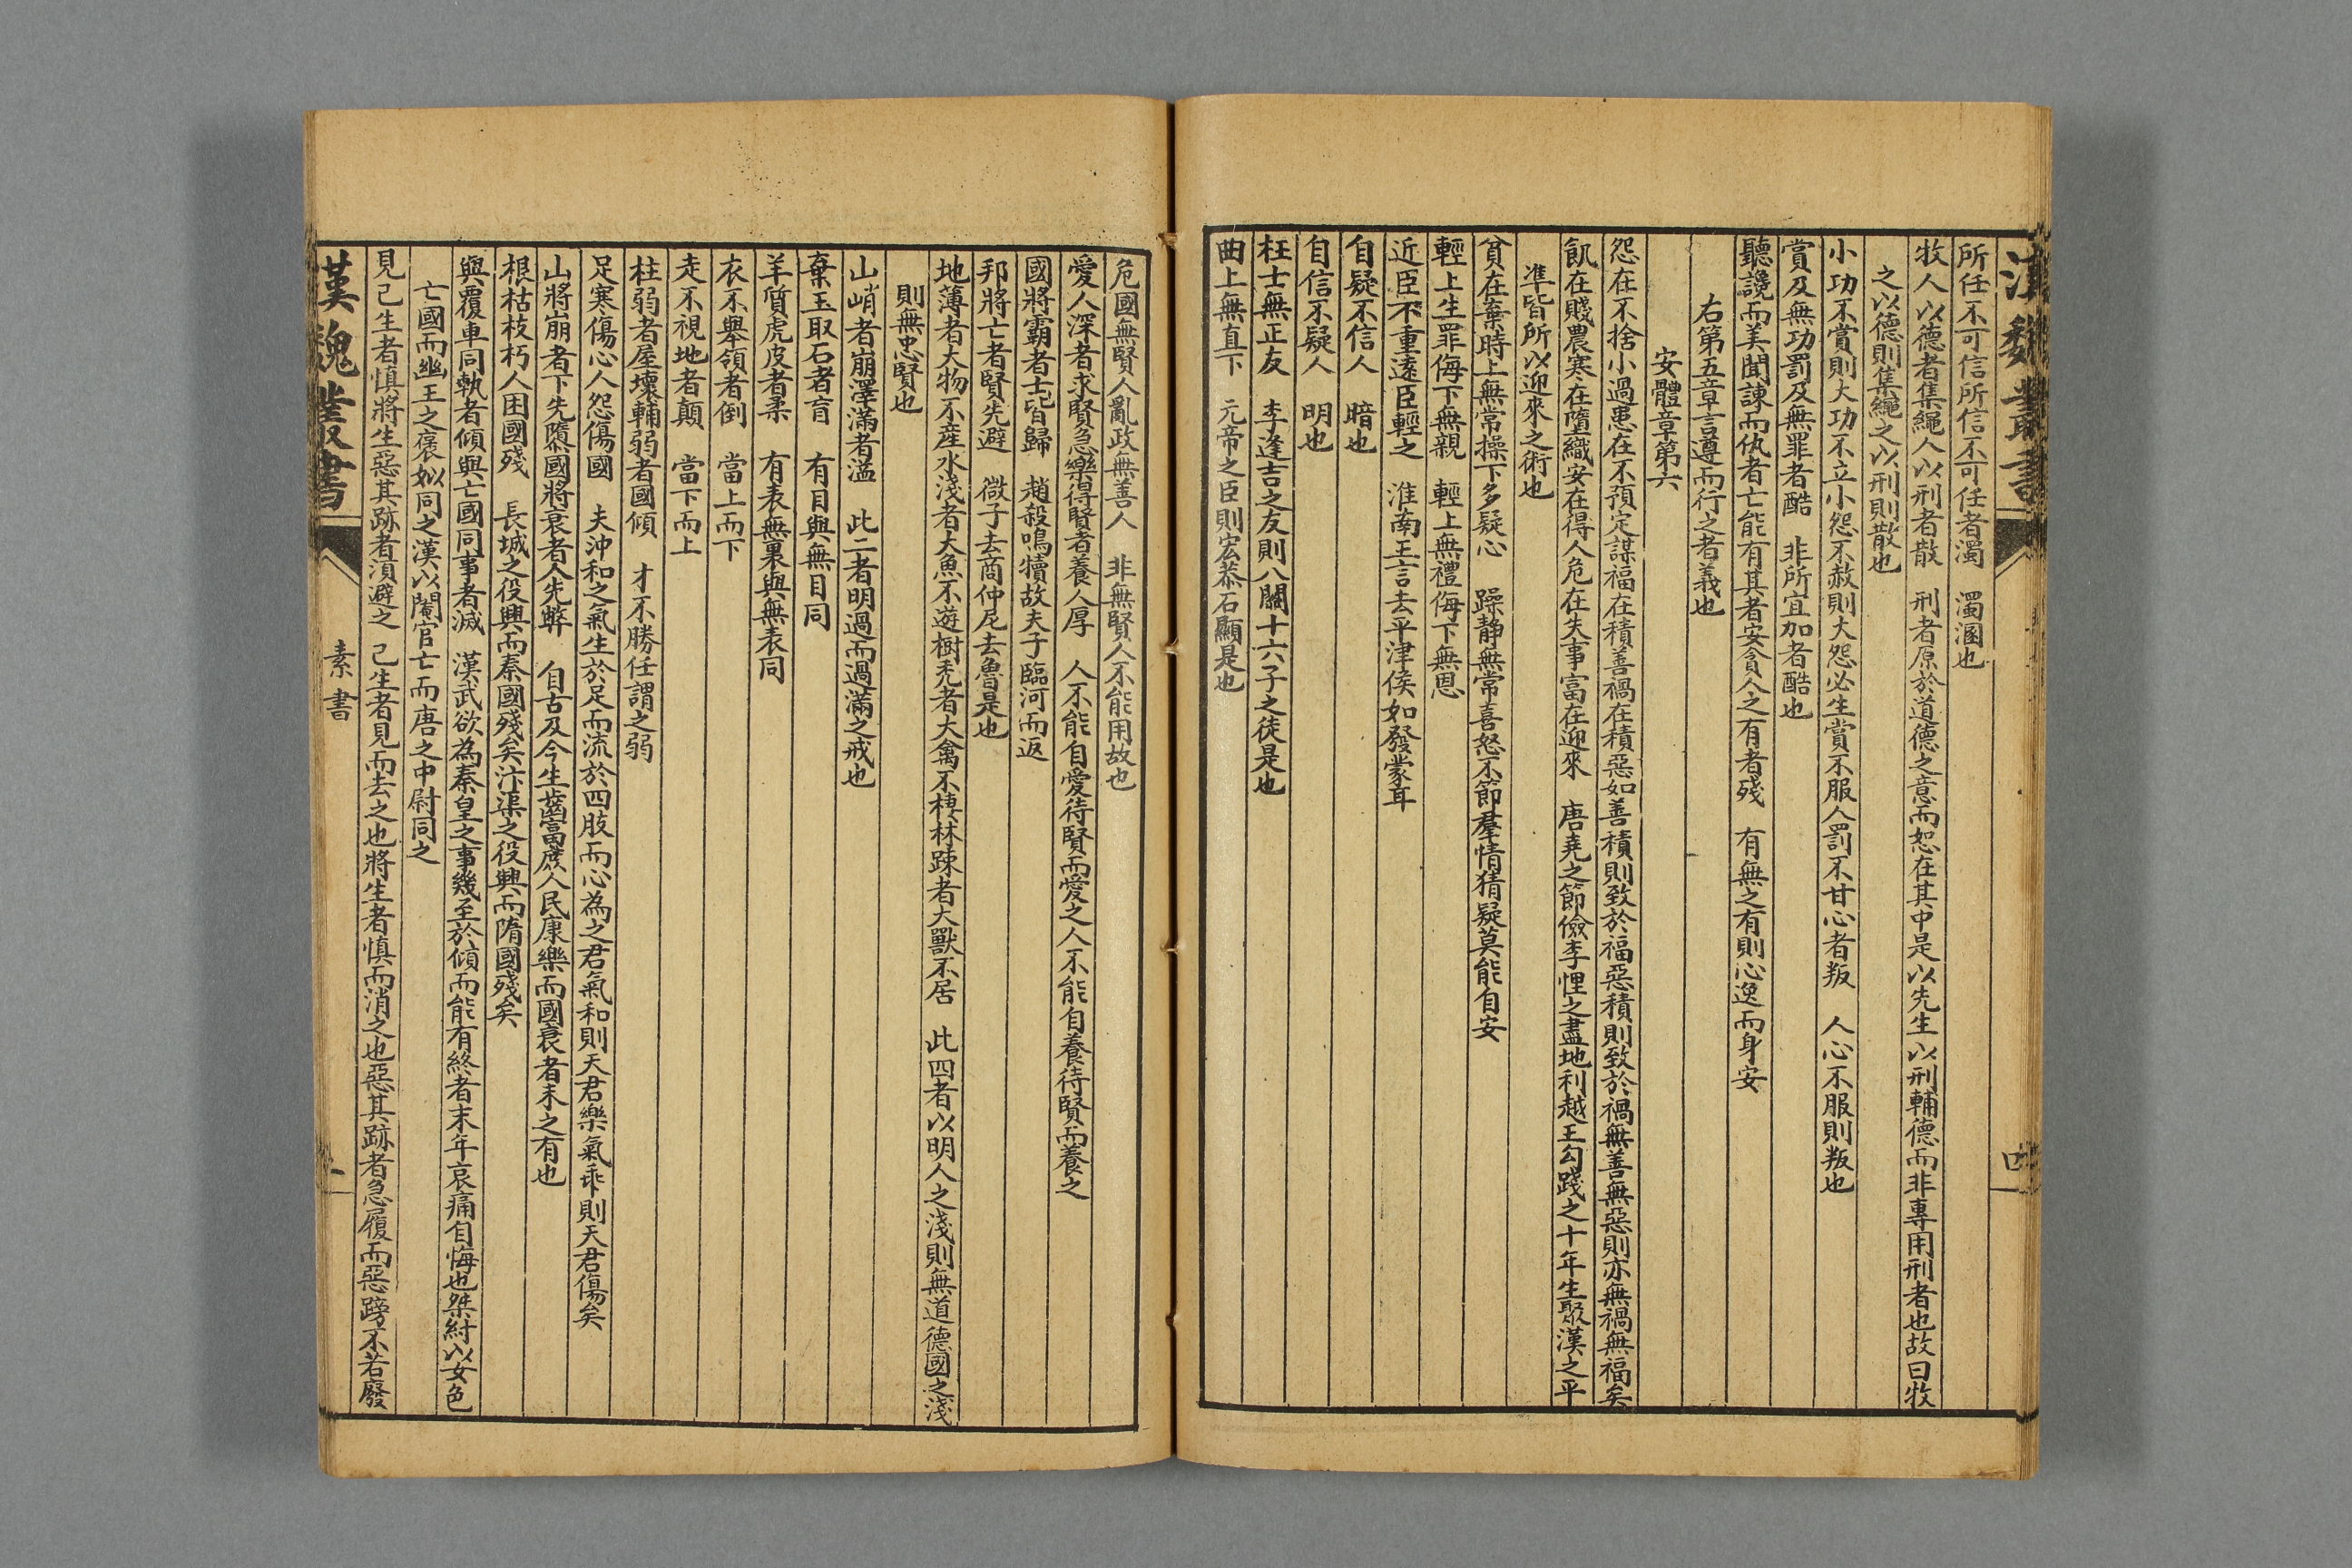 漢魏叢書
四
所任不可信所信不可任者濁　濁溷也
牧人以德者集繩人以刑者散　刑者原於道德之意而恕在其中是以先生以刑輔德而非專用刑者也故曰牧
之以德則集繩之以刑則散也
小功不賞則大功不立小怨不赦則大怨必生賞不服人罰不甘心者叛　人心不服則叛也
賞及無功罰及無罪者酷　非所宜加者酷也
聽讒而美聞諫而仇者亡能有其者安貪人之有者殘　有無之有則心逸而身安
右第五章言遵而行之者義也
安體章第六
怨在不捨小過患在不預定謀福在積善禍在積惡如善積則致於福惡積則致於禍無善無惡則亦無禍無福矣
飢在賤農寒在墮織安在得人危在失事富在迎來　唐堯之節儉李悝之盡地利越王勾踐之十年生聚漢之平
準皆所以迎來之術也
貧在棄時上無常操下多疑心　躁静無常喜怒不節羣情猜疑莫能自安
輕上生罪侮下無親　輕上無禮侮下無恩
近臣不重遠臣輕之　淮南王言去平津侯如發蒙耳
自疑不信人　暗也
自信不疑人　明也
枉士無正友　李逢吉之友則八關十六子之徒是也
曲上無直下　元帝之臣則宏恭石顯是也
危國無賢人亂政無善人　非無賢人不能用故也
愛人深者求賢急樂得賢者養人厚　人不能自愛待賢而愛之人不能自養待賢而養之
國將霸者士皆歸　趙殺鳴犢故夫子臨河而返
邦將亡者賢先避　微子去商仲尼去魯是也
地薄者大物不産水淺者大魚不遊樹秃者大禽不棲林踈者大獸不居　此四者以明人之淺則無道德國之淺
則無忠賢也
山峭者崩澤滿者溢　此二者明過而過滿之戒也
棄玉取石者盲　有目與無目同
羊質虎皮者柔　有表無裏與無表同
衣不舉領者倒　當上而下
走不視地者顛　當下而上
柱弱者屋壞輔弱者國傾　才不勝任謂之弱
足寒傷心人怨傷國　夫沖和之氣生於足而流於四肢而心為之君氣和則天君樂氣乖則天君傷矣
山將崩者下先隳國將衰者人先弊　自古及今生齒富庶人民康樂而國衰者未之有也
根枯枝朽人困國殘　長城之役興而秦國殘矣汴渠之役興而隋國殘矣
與覆車同軌者傾與亡國同事者滅　漢武欲為秦皇之事幾至於傾而能有終者末年哀痛自悔也桀紂以女色
亡國而幽王之褒姒同之漢以閹官亡而唐之中尉同之
見己生者慎將生惡其跡者湏避之　己生者見而去之也將生者慎而消之也惡其跡者急履而惡蹐不若廢
漢魏叢書
素書